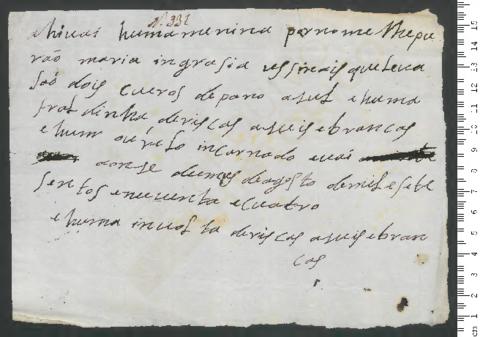 nº 332
ahi vai huma menina por nome lhe pu
rão maria ingrasia os sinais que leva
são dois cueros de pano asul e huma
de riscas asuis e brancos
e hum incarnado e vai
aos onse do mes de agosto de mil e sete
sentos e noventa e cuatro
e huma de riscas asuis e bran
cas